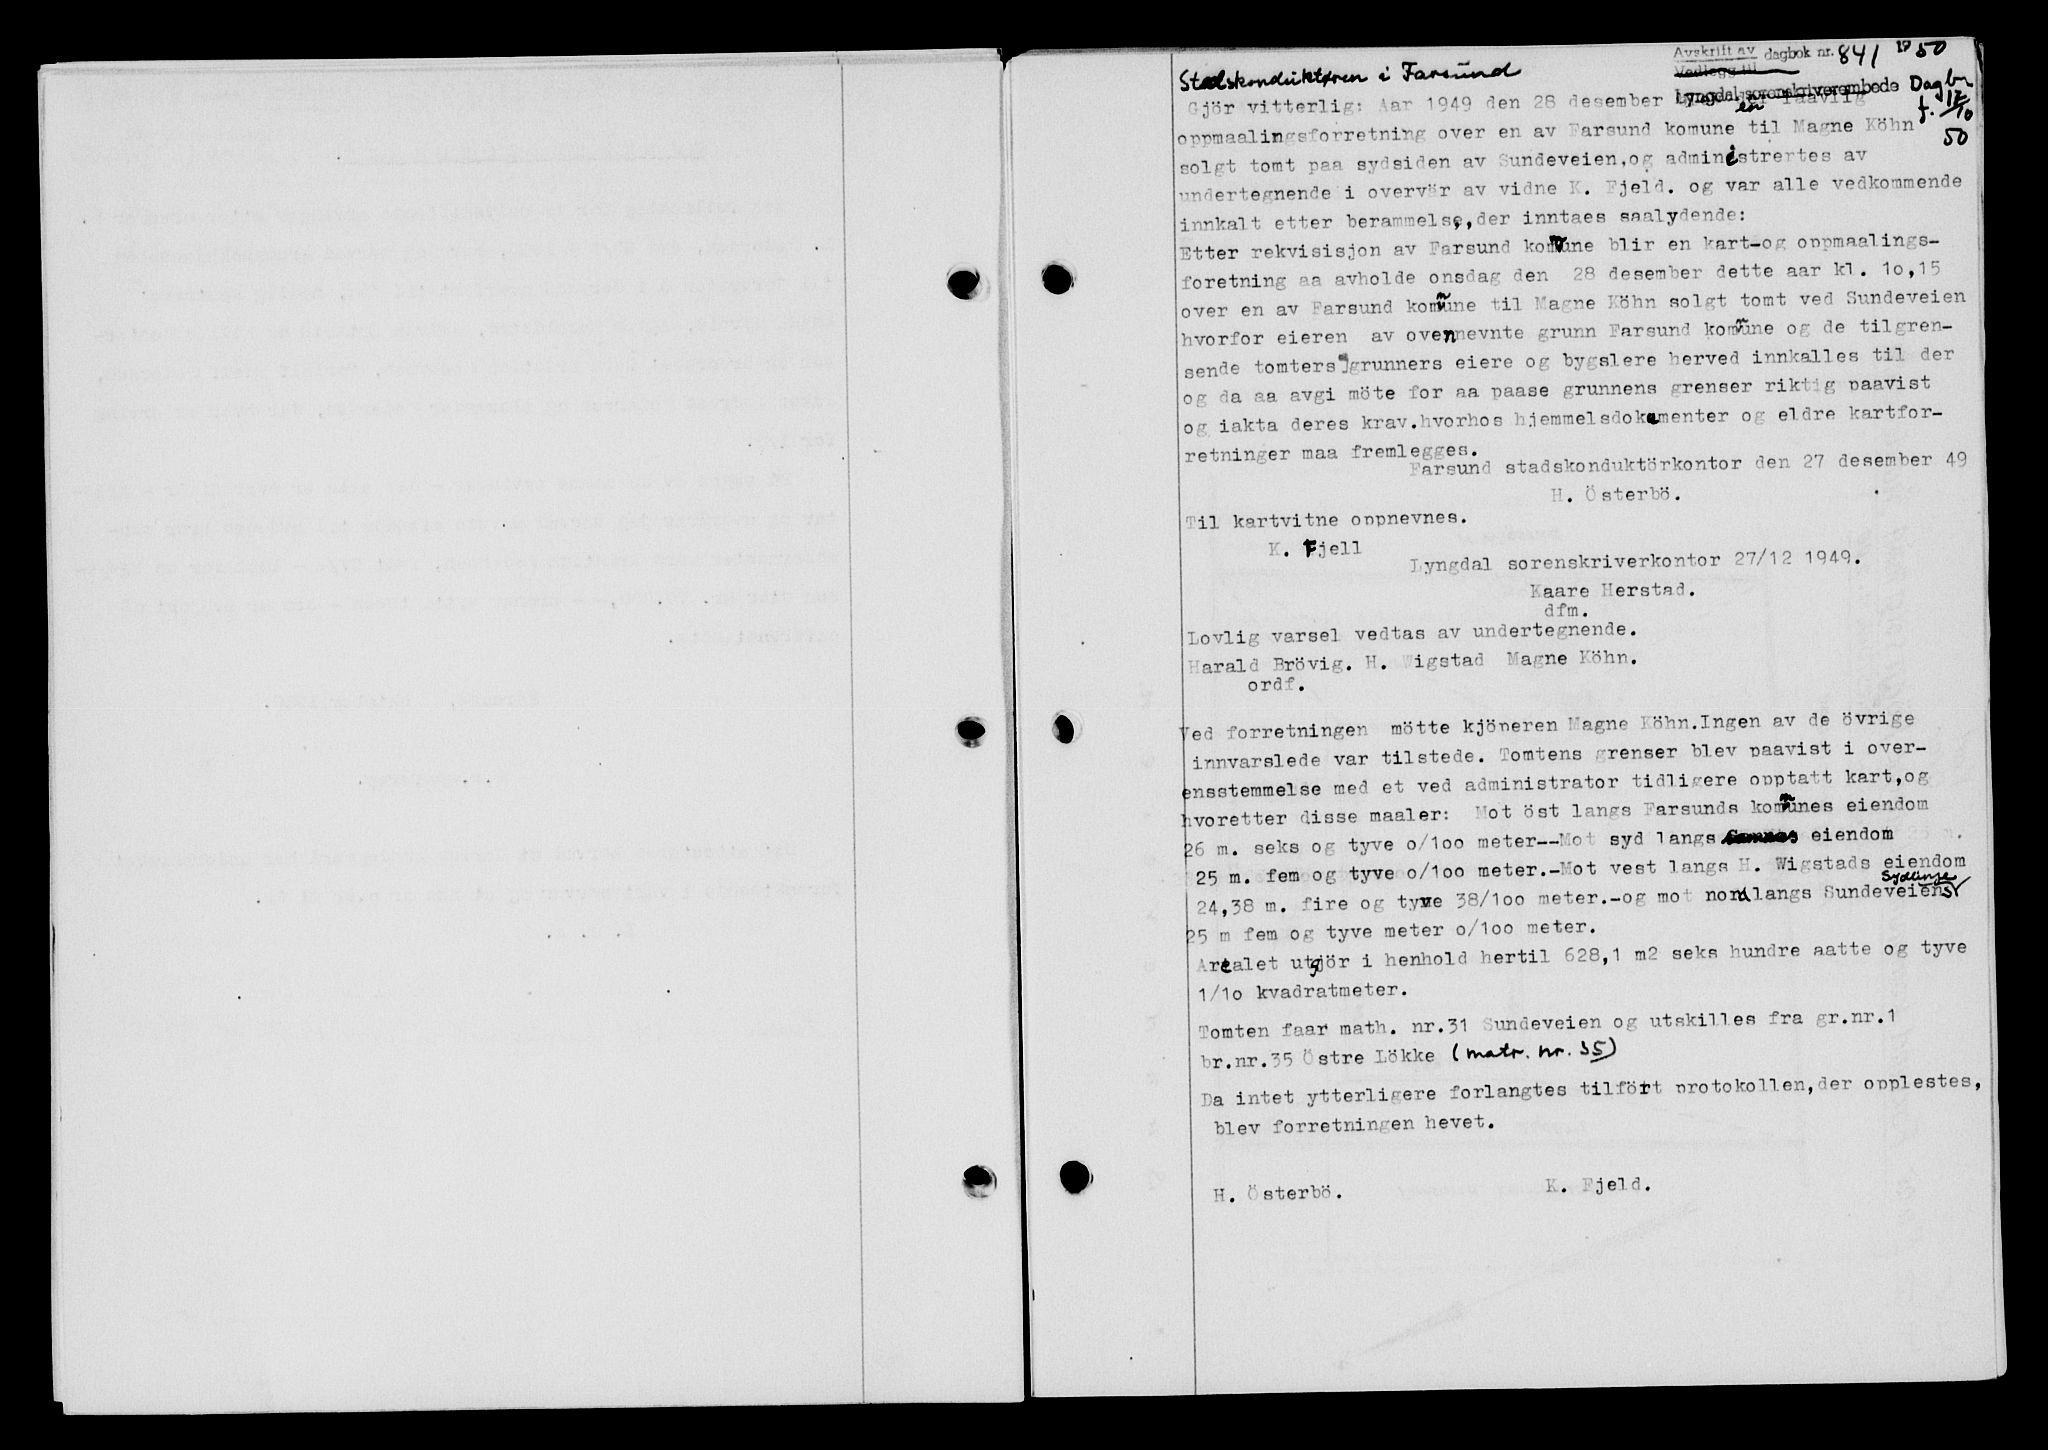 Avskrift av dagbok nr. 841 1950
Vedlegg til
Lyngdal sorenskriverembede Dagbn
f. 17/10
50
Stadskonduktøren i Farsund
Gjör vitterlig: Aar 1949 den 28 desember
oppmaalingsforretning over en av Farsund komune til Magne Köhn
solgt tomt paa sydsiden av Sundeveien,og administrertes av
undertegnende i overvär av vidne K. Fjeld. og var alle vedkommende
innkalt etter berammelse,der inntaes saalydende:
Etter rekvisisjon av Farsund kommune blir en kart-og oppmaalings-
foretning aa avholde onsdag den 28 desember dette aar kl. 1o,15
over en av Farsund kommune til Magne Köhn solgt tomt ved Sundeveien
hvorfor eieren av ovennevnte grunn Farsund kommune og de tilgren-
sende tomters grunners eiere og bygslere herved innkalles til der
og da aa avgi möte for aa paase grunnens grenser riktig paavist
og iakta deres krav.hvorhos hjemmelsdokumenter og eldre kartfor-
retninger maa fremlegges.
Farsund stadskonduktörkontor den 27 desember 49
H. Österbö.
Til kartvitne oppnevnes.
K. Fjell
Lyngdal sorenskriverkontor 27/12 1949.
Kaare Herstad.
dfm.
Lovlig varsel vedtas av undertegnende.
Harald Brövig. H. Wigstad Magne Köhn.
ordf.
Ved forretningen mötte kjöperen Magne Köhn.Ingen av de övrige
innvarslede var tilstede. Tomtens grenser blev paavist i over-
ensstemmelse med et ved administrator tidligere opptatt kart,og
hvoretter disse maaler: Mot öst langs Farsunds kommunes eiendom
26 m. seks og tyve o/1oo meter--Mot syd langs eiendom
25 m. fem og tyve o/1oo meter.-Mot vest langs H. Wigstads eiendom
24,38 m. fire og tyve 38/1oo meter.-og mot nord langs Sundeveiens sydlinje
25 m fem og tyve meter o/1oo meter.
Arealet utgjör i henhold hertil 628,1 m2 seks hundre aatte og tyve
1/1o kvadratmeter.
Tomten faar math. nr.31 Sundeveien og utskilles fra gr.nr.1
br.nr.35 Östre Lökke (matr. nr. 35)
Da intet ytterligere forlangtes tilfört protokollen,der opplestes,
blev forretningen hevet.
H. Österbö. K. Fjeld.